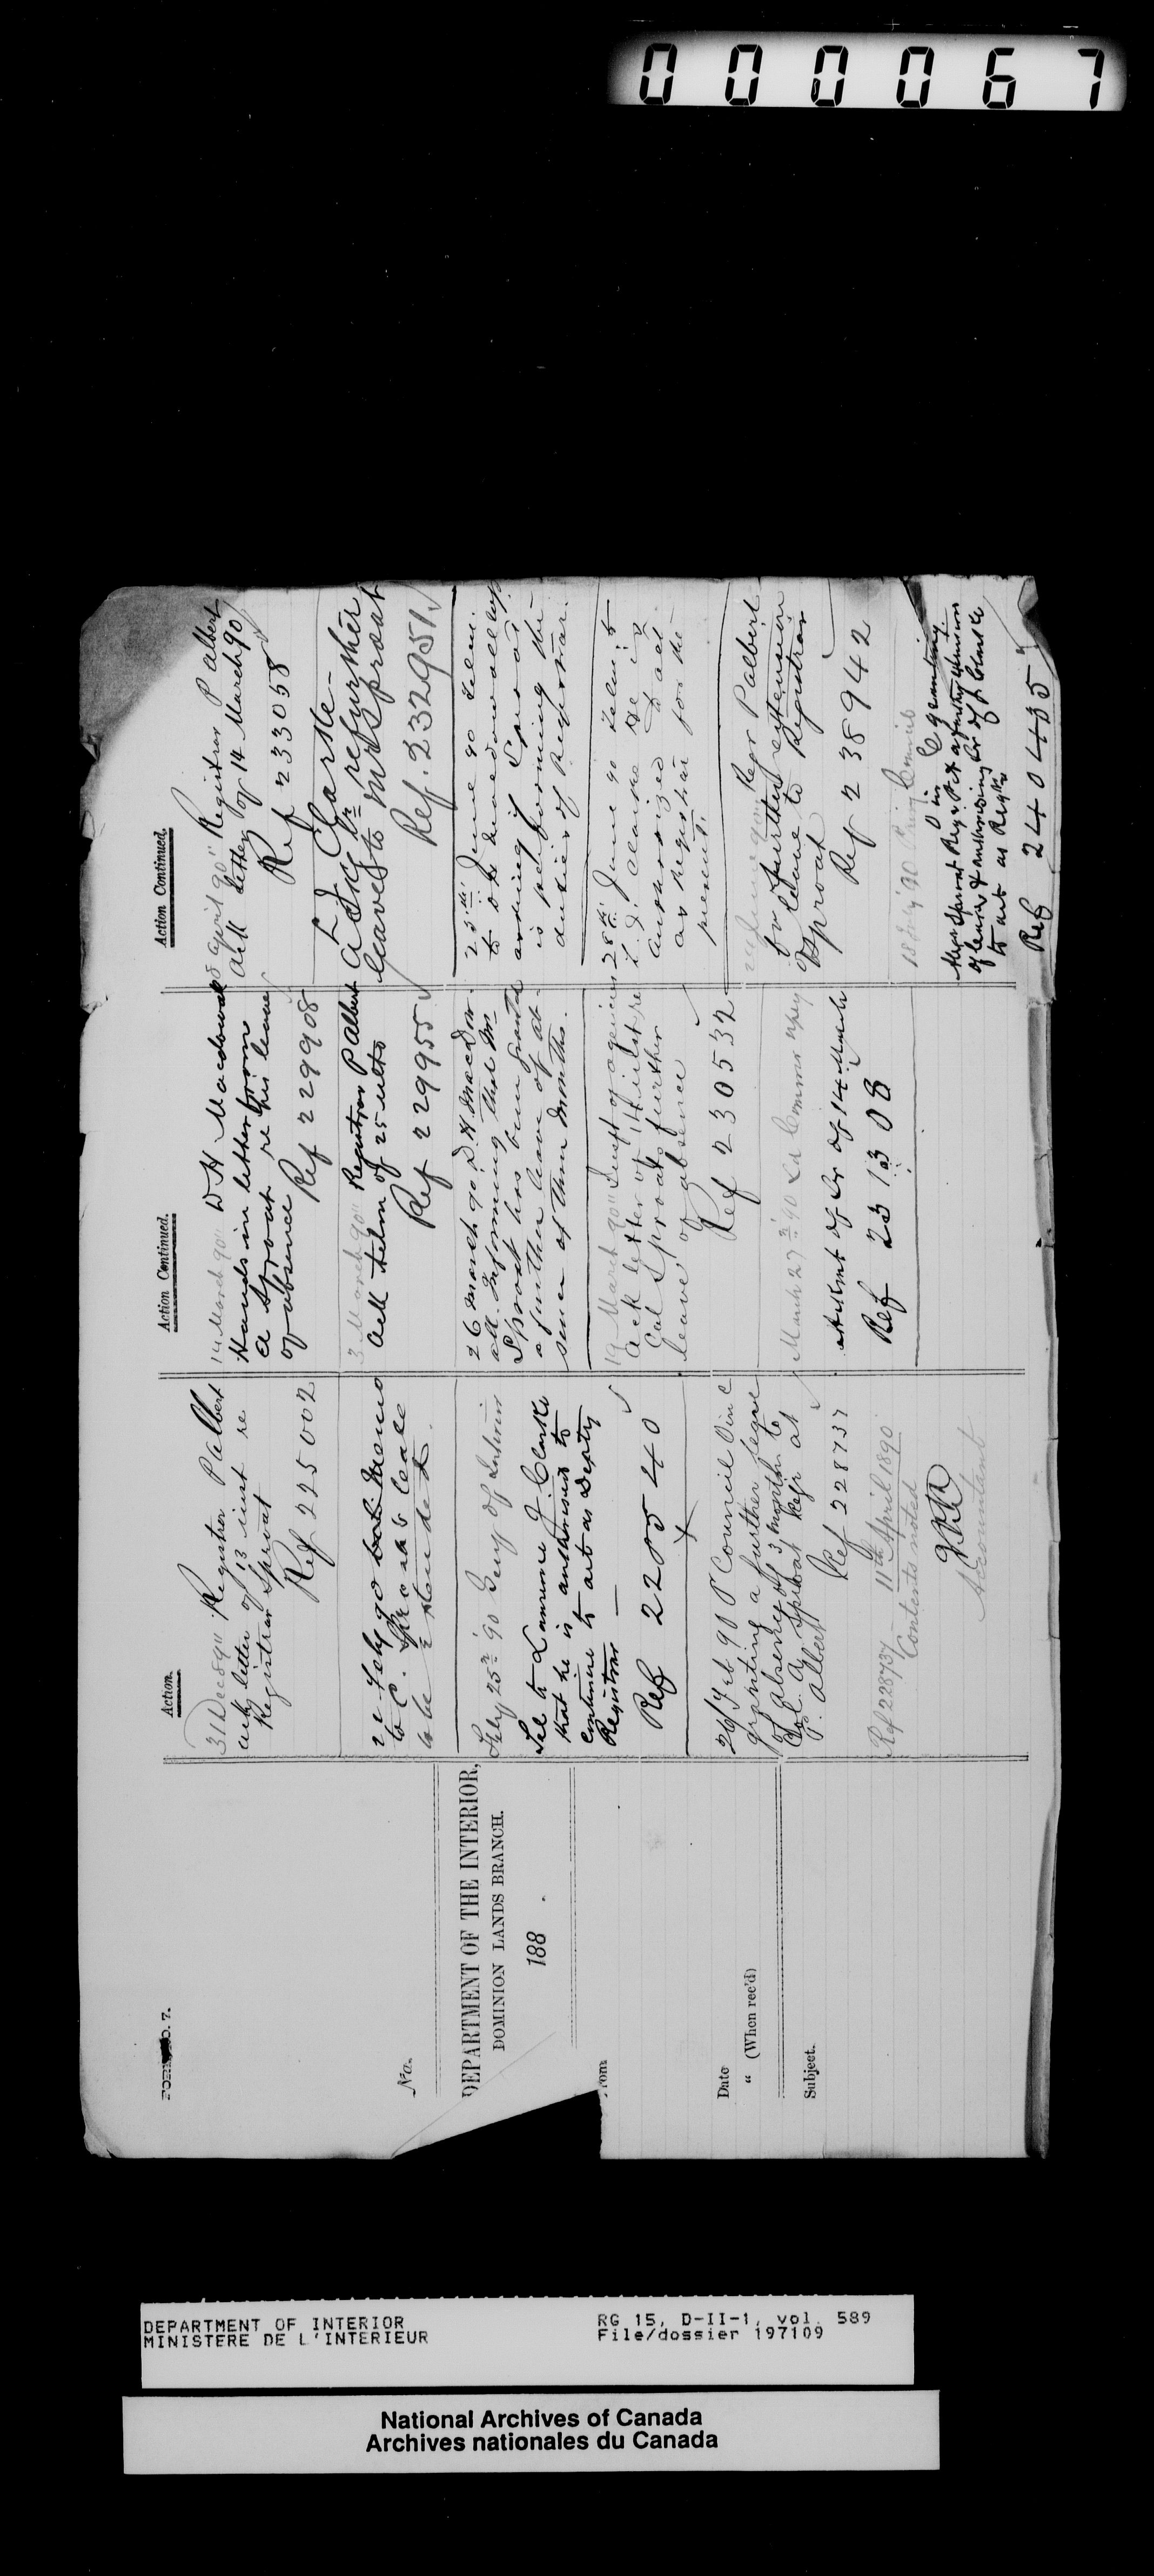 000067
FORM NO. 7.
No.
DEPARTMENT OF THE INTERIOR,
DOMINION LANDS BRANCH.
188 .
From
Date
" (When rec'd)
Subject.
Action.
31 Dec 89" Registrar P Albert
ack letter of 13 inst re
Registrar Sproat
Ref 225002
22 Feby 90 Memo
to C. Sproats leave
to be extended
Feby 25 '90 Secy of Interior
Tel to Lawrence J. Clarke
that he is authorised to
continue to act as Deputy
Registrar
Ref 228540
26 Feb 90 P Council O in C
granting a further leave
of absence of 3 months to
Col. A. Sproat Regr at
P. Albert
Ref 228737
Ref 228737 — 11th April 1890
Contents noted
Accountant
Action Continued.
14 March 90" D H Macdowall
Hands in letter from
A Sproat re his leave
of absence
Ref 229908
3 March 90" Registrar P Albert
Ack telm of 25 ulto
Ref 229955
26 March 90 D. H. Macdow-
all. Informing that Mr
Sproat has been granted
a further leave of ab-
sence of three months.
19 March 90" Supt of agencies
Ack letter of 11th inst re
Col Sproats further
leave of absence
Ref 230532
March 27 '90 Ld Commr Wpeg
of Lr of 14 March
Ref 231308
Action Continued.
8 April 90" Registrar P Albert
Ack letter of 14 March 90
Ref 233058
L J Clarke-
asking re further
leave to Mr Sproat
Ref. 232951
25th June 90 Telm
to D H Macdowall
asking if Sproat
is performing the
duties of Registrar.
28th June 90 Telm to
L. J. Clarke He is
authorized to act
as registrar for the
present.
Regr P Albert
for further extension
of leave to Registrar
Sproat
Ref 238942
18 July '90 Privy Council
O in C granting
Alex Sproat Regr P A a further extension
of leave & authorising Lr of J Clarke
to act as Regtr
Ref 240435
DEPARTMENT OF INTERIOR
MINISTERE DE L'INTERIEUR
RG 15, D-II-1, vol. 589
File/dossier 197109
National Archives of Canada
Archives nationales du Canada